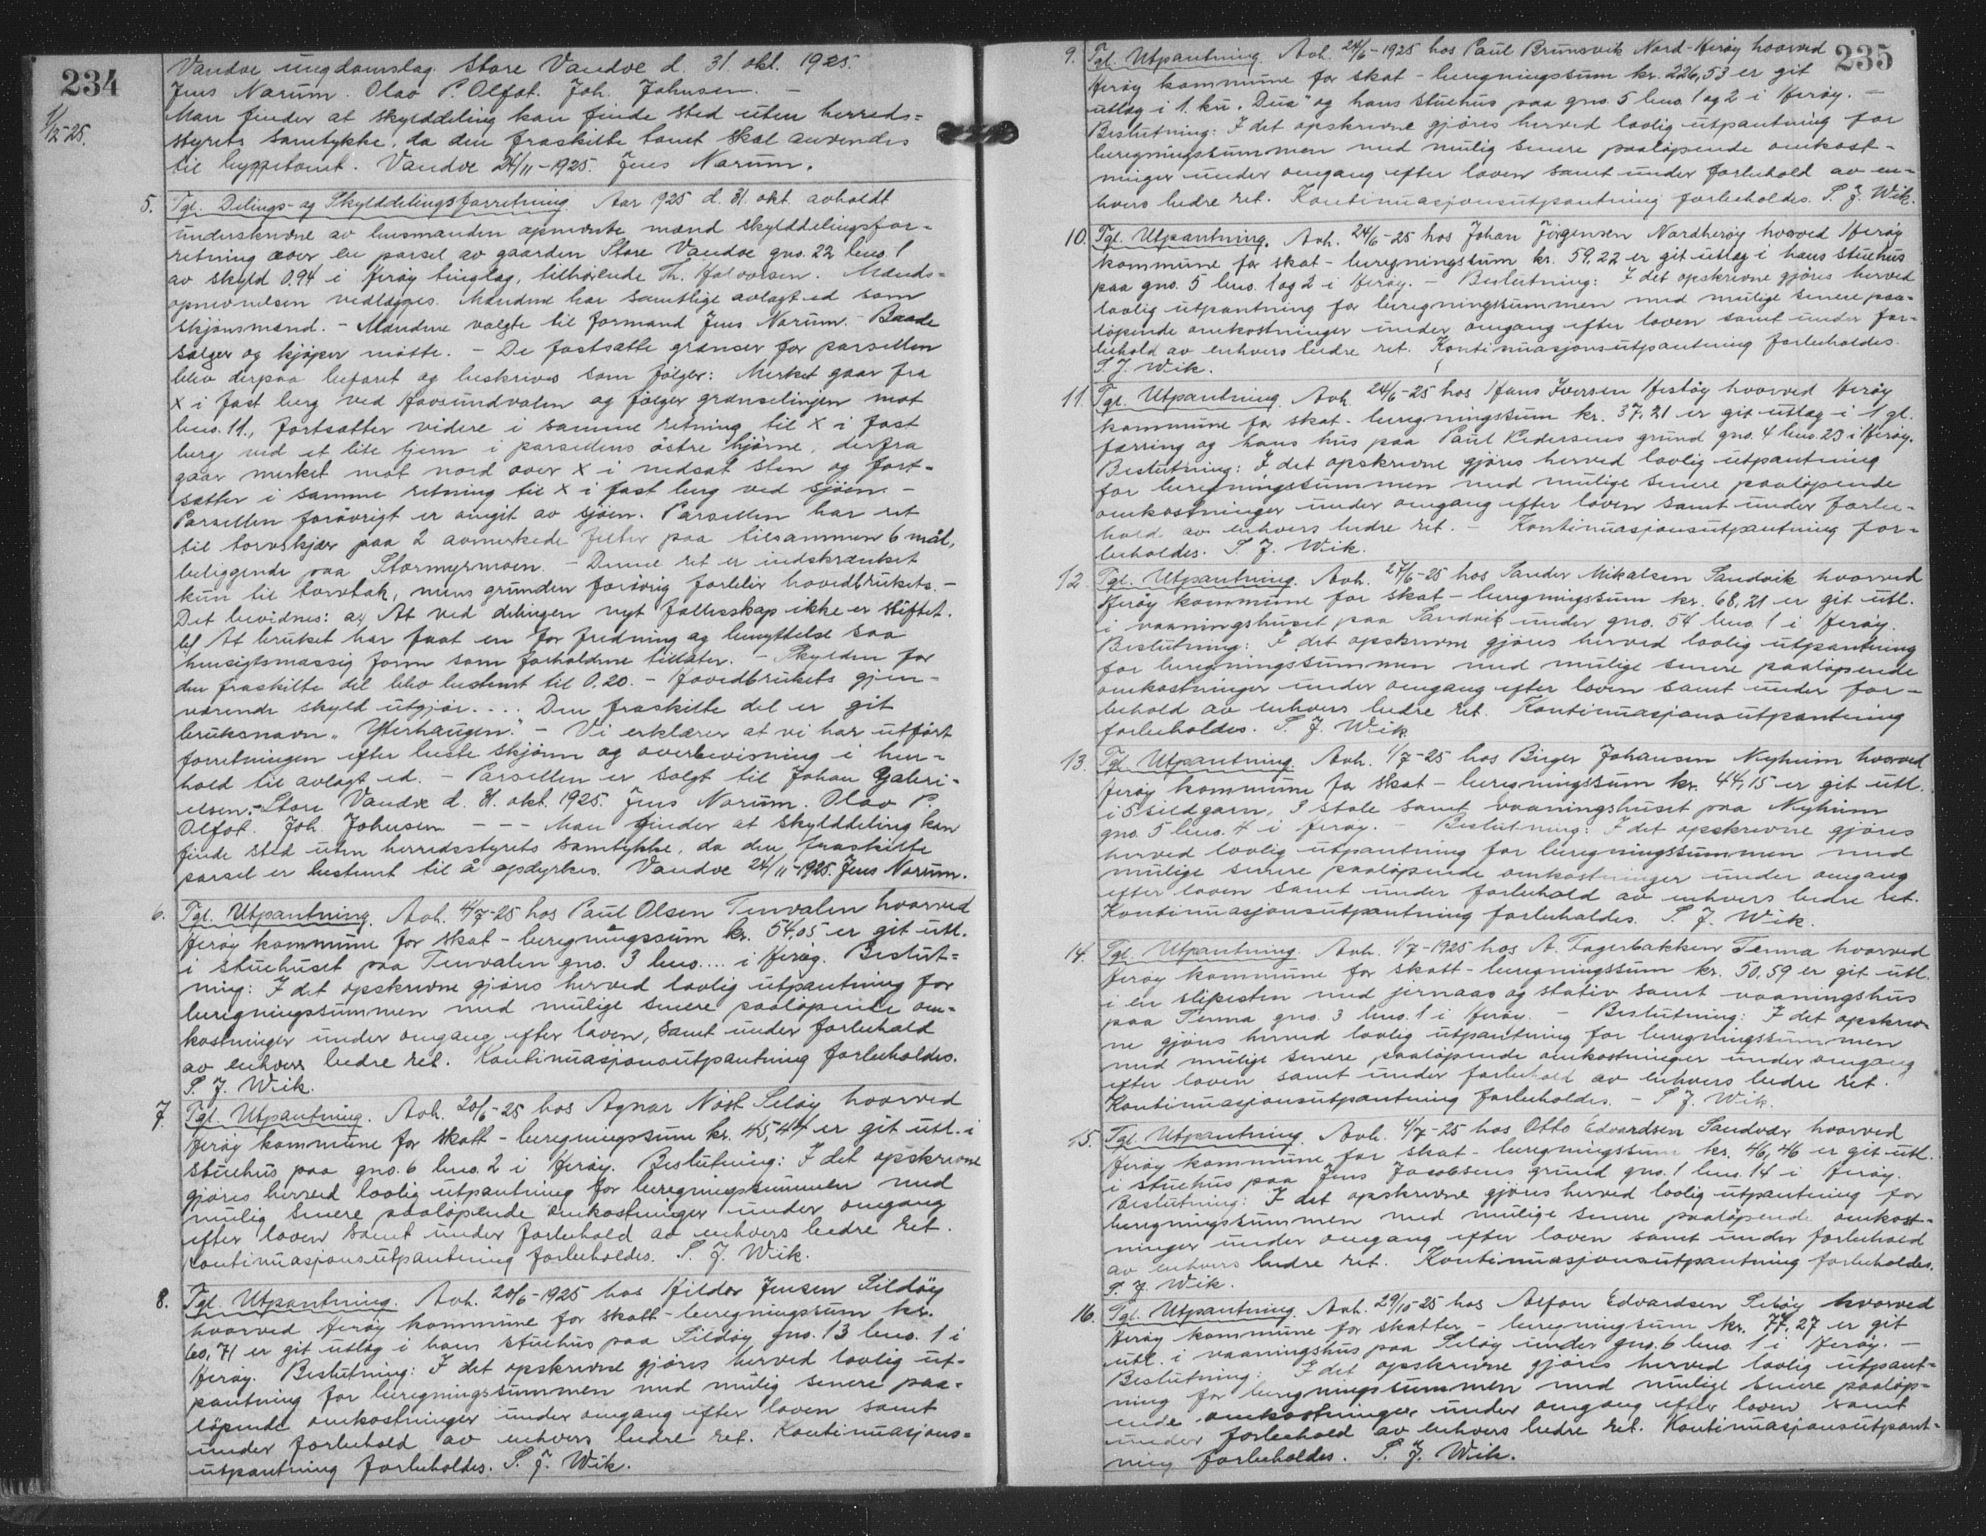 234
1/12-25.
Vandve ungdomslag. Store Vandve d. 31. okt. 1925.
Jens Narum. Olav P. Olfot. Joh. Johnsen. —
Man finder at skylddeling kan finde sted uten herreds=
styrets samtykke, da den fraskilte tomt skal anvendes
til byggetomt. Vandve 24/11-1925. Jens Narum.
5. Tgl. Delings- og Skylddelingsforretning. Aar 1925 d. 31. okt. avholdt
underskrevne av lensmanden opnævnte mænd skylddelingsfor-
retning over en parsel av gaarden Store Vandve gno. 22 bno. 1
av skyld 0.94 i Herøy tinglag, tilhørende Th. Halvorsen. Mænds-
opnevnelsen vedlægges. Mændene har samtlige avlagt ed som
skjønsmænd. - Mændene valgte til formand Jens Narum. - Baade
sælger og kjøper møtte. - De fastsatte grænser for parsellen
blev derpaa befaret og beskrives som følger: Merket gaar fra
X i fast berg ved Havsundvalen og følger grænselinjen mot
bno. 11., fortsætter videre i samme retning til X i fast
berg ved et lite tjern i parsellens østre hjørne, derfra
gaar merket mot nord over X i nedsat sten og fort-
sætter i samme retning til X i fast berg ved sjøen. -
Parsellen forøvrigt er omgit av sjøen. Parsellen har ret
til torvskjær paa 2 avmerkede felter paa tilsammen 6 mål,
beliggende paa Stormyrmoen. - Denne ret er indskrænket
kun til torvtak, mens grunden forøvrig forblir hovedbrukets. -
Det bevidnes: a) At ved delingen nyt fællesskap ikke er stiftet.
b) At bruket har faat en for fredning og benyttelse saa
hensigtsmæssig form som forholdene tillater. - Skylden for
den fraskilte del blev bestemt til 0.20. - Hovedbrukets gjen-
værende skyld utgjør.... Den fraskilte del er git
bruksnavn „Ytterhaugen". - Vi erklærer at vi har utført
forretningen efter beste skjønn og overbevisning i hen-
hold til avlagt ed. - Parsellen er solgt til Johan Gabri-
elsen. - Store Vandve d. 31. okt. 1925. Jens Narum. Olav P.
Olfot. Joh. Johnsen - - - Man finder at skylddeling kan
finde sted uten herredsstyrets samtykke, da den fraskilte
parsel er bestemt til å opdyrkes. Vandve 24/11-1925. Jens Narum.
6. Tgl. Utpantning. Avh. 4/7-25 hos Paul Olsen Tenvalen hvorved
Herøy kommune for skat - beregningssum kr. 54,05 er git utl.
i stuehuset paa Tenvalen gno. 3 bno.... i Herøy. Beslut=
ning: I det opskrevne gjøres herved lovlig utpantning for
beregningssummen med mulige senere paaløpende om-
kostninger under omgang efter loven, samt under forbehold
av enhvers bedre ret. Kontinuasjonsutpantning forbeholdes.
S. J. Wik.
7. Tgl. Utpantning. Avh. 20/6-25 hos Agnar Nøst Seløy hvorved
Herøy kommune for skatt - beregningssum kr. 45,44 er git utl. i
stuehus paa gno. 6 bno. 2 i Herøy. Beslutning: I det opskrevne
gjøres herved lovlig utpantning for beregningssummen med
mulig senere paaløpende omkostninger under omgang
efter loven samt under forbehold av enhvers bedre ret.
Kontinuasjonsutpantning forbeholdes. S. J. Wik.
8. Tgl. Utpantning. Avh. 20/6-1925 hos Hildor Jensen Sildøy
hvorved Herøy kommune for skatt - beregningssum kr.
60,71 er git utlæg i hans stuehus paa Sildøy gno. 13 bno. 1 i
Herøy. Beslutning: I det opskrevne gjøres herved lovlig ut-
pantning for beregningssummen med mulig senere paa-
løpende omkostninger under omgang efter loven samt
under forbehold av enhvers bedre ret. Kontinuasjons=
utpantning forbeholdes. S. J. Wik.
235
9. Tgl. Utpantning. Avh. 24/6-1925 hos Paul Brunsvik Nord-Herøy hvorved
Herøy kommune for skat - beregningssum kr. 226,53 er git
utlæg i 1 ku „Dua" og hans stuehus paa gno. 5 bno. 1 og 2 i Herøy. -
Beslutning: I det opskrevne gjøres herved lovlig utpantning for
beregningssummen med mulig senere paaløpende omkost-
ninger under omgang efter loven samt under forbehold av en-
hvers bedre ret. Kontinuasjonsutpantning forbeholdes. S. J. Wik.
10. Tgl. Utpantning. Avh. 24/6-25 hos Johan Jørgensen Nordherøy hvorved Herøy
kommune for skat - beregningssum kr. 59,22 er git utlæg i hans stuehus
paa gno. 5 bno. 1 og 2 i Herøy. - Beslutning: I det opskrevne gjøres herved
lovlig utpantning for beregningssummen med mulige senere paa-
løpende omkostninger under omgang efter loven samt under for-
behold av enhvers bedre ret. Kontinuasjonsutpantning forbeholdes.
S. J. Wik.
11. Tgl. Utpantning. Avh. 24/6-25 hos Hans Iversen Hestøy hvorved Herøy
kommune for skat - beregningssum kr. 37,21 er git utlæg i 1 gl.
færring og hans hus paa Paul Pedersens grund gno. 4 bno. 23 i Herøy.
Beslutning: I det opskrevne gjøres herved lovlig utpantning
for beregningssummen med mulige senere paaløpende
omkostninger under omgang efter loven samt under forbe-
hold av enhvers bedre ret. - Kontinuasjonsutpantning for-
beholdes. S. J. Wik.
12. Tgl. Utpantning. Avh. 27/6-25 hos Sander Mikalsen Sandvik hvorved
Herøy kommune for skat - beregningssum kr. 68,21 er git utl.
i vaaningshuset paa Sandvik under gno. 54 bno. 1 i Herøy.
Beslutning: I det opskrevne gjøres herved lovlig utpantning
for beregningssummen med mulige senere paaløpende
omkostninger under omgang efter loven samt under for-
behold av enhvers bedre ret. Kontinuasjonsutpantning
forbeholdes. S. J. Wik
13. Tgl. Utpantning. Avh. 1/7-25 hos Birger Johansen Nyheim hvorved
Herøy kommune for skat - beregningssum kr. 44,15 er git utl.
i 5 sildgarn, 3 stole samt vaaningshuset paa Nyheim
gno. 5 bno. 4 i Herøy. - Beslutning: I det opskrevne gjøres
herved lovlig utpantning for beregningssummen med
mulige senere paaløpende omkostninger under omgang
efter loven samt under forbehold av enhvers bedre ret.
Kontinuasjonsutpantning forbeholdes. S. J. Wik.
14. Tgl. Utpantning. Avh. 1/7-1925 hos A. Fagerbakken Tenna hvorved
Herøy kommune for skatt - beregningssum kr. 50,59 er git utl.
i en slipesten med jernaas og stativ samt vaaningshus
paa Tenna gno. 3 bno. 1 i Herøy. - Beslutning: I det opskrev-
ne gjøres herved lovlig utpantning for beregningssummen
med mulige senere paaløpende omkostninger under omgang
efter loven samt under forbehold av enhvers bedre ret.
Kontinuasjonsutpantning forbeholdes. - S. J. Wik.
15. Tgl. Utpantning. Avh. 4/7-25 hos Otto Edvardsen Sandvær hvorved
Herøy kommune for skat - beregningssum kr. 46,46 er git utl.
i stuehus paa Jens Jacobsens grund gno. 1 bno. 14 i Herøy.
Beslutning: I det opskrevne gjøres herved lovlig utpantning for
beregningssummen med mulige senere paaløpende omkost-
ninger under omgang efter loven samt under forbehold
av enhvers bedre ret. Kontinuasjonsutpantning forbeholdes.
S. J. Wik.
16. Tgl. Utpantning. Avh. 29/10-25 hos Alfon Edvardsen Seløy hvorved
Herøy kommune for skatter - beregningssum kr. 77,27 er git
utl. i vaaningshus paa Seløy under gno. 6 bno. 1 i Herøy. -
Beslutning: I det opskrevne gjøres herved lovlig utpant-
ning for beregningssummen med mulige senere paaløp-
ende omkostninger under omgang efter loven samt
under forbehold av enhvers bedre ret. Kontinuasjonsutpant-
ning forbeholdes. S. J. Wik.